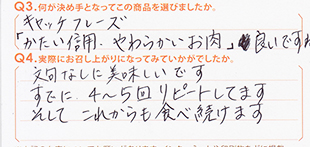 Q3.何が決め手となってこの商品を選びましたか。
キャッチフレーズ
「かたい信用、やわらかいお肉」良いですね
Q4.実際にお召し上がりになってみていかがでしたか。
文句なしに美味しいです
すでに 4〜5回リピートしてます
そして これからも食べ続けます